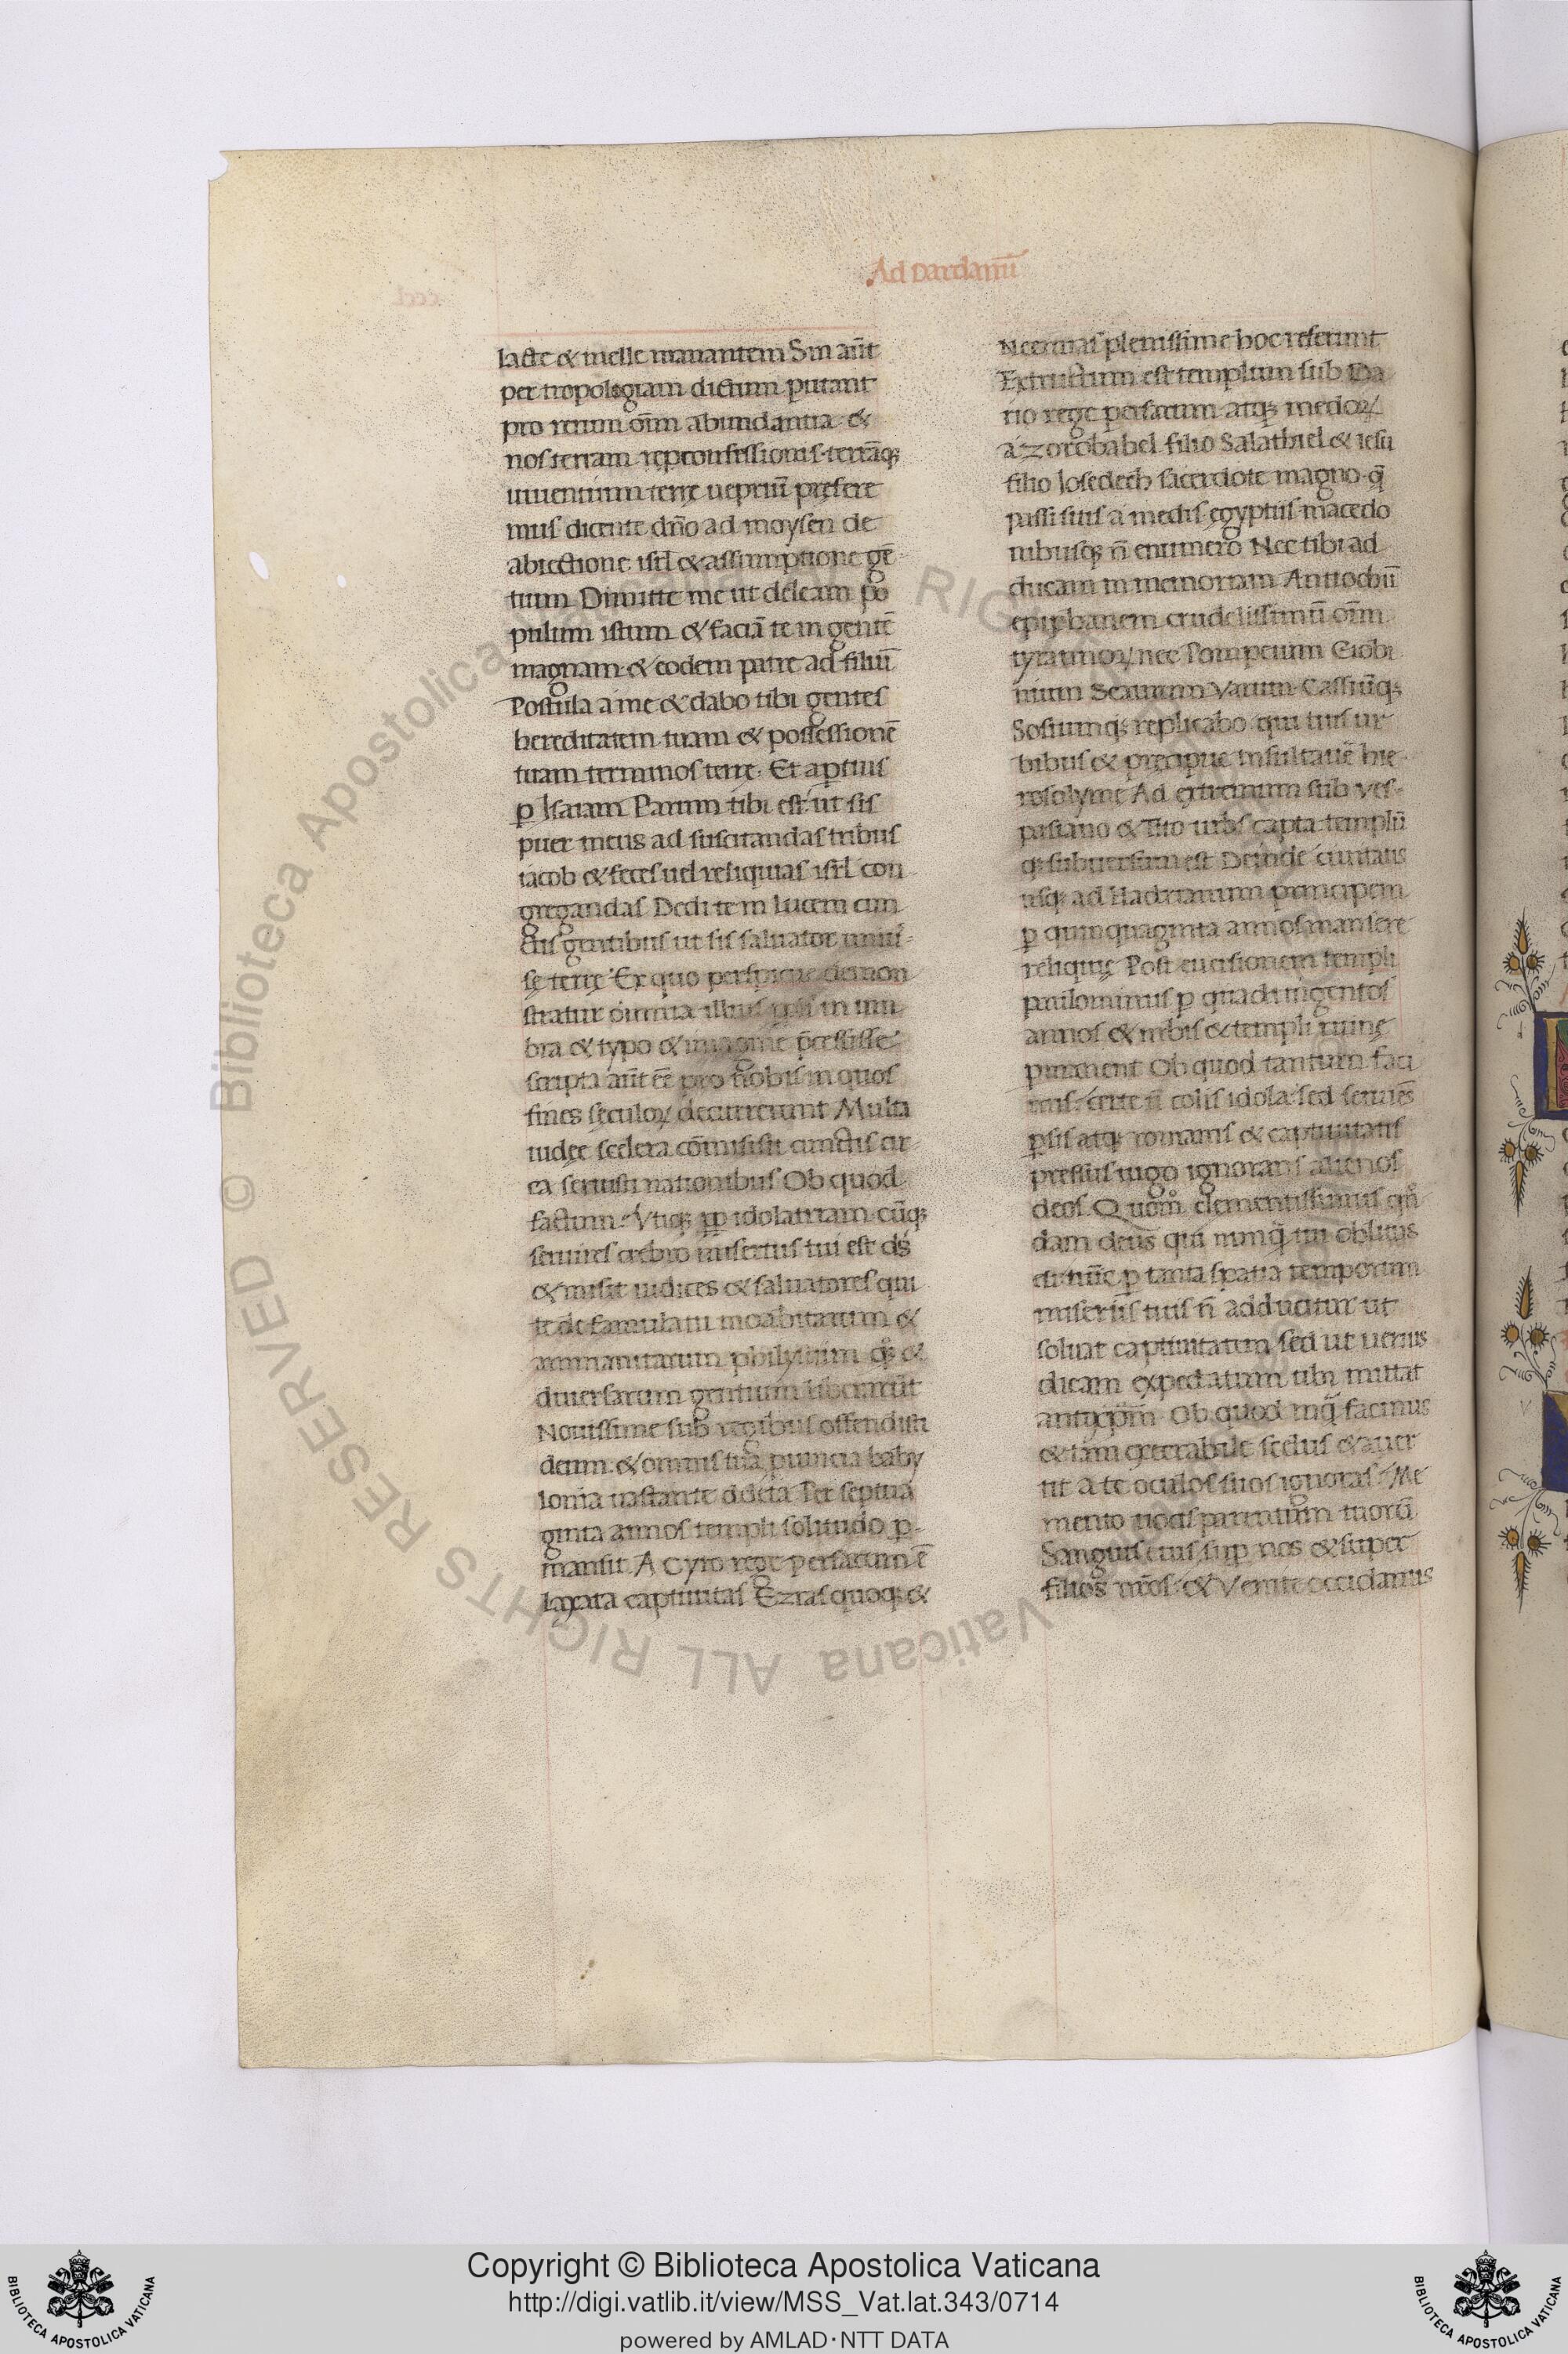 Ad Dardanū
lacte & melle manantem Sin aūt
per tropologiam dictum putant
pro rerum oīm abundantia &
nos terram repromissionis terrāq;
uiuentium terrę ueprium pręfere
mus dicente dn̄o ad moysen de
abiectione isrl̄ & assumptione gē
tium Dimitte me ut deleam po
pulum istum & faciā te in gentē
magnam & eodem patre ad filiū
Postula a me & dabo tibi gentes
hereditatem tuam & possessionē
tuam terminos terrę. Et apertius
ꝑ Isaiam Parum tibi est ut sis
puer meus ad suscitandas tribus
iacob & feces uel reliquias isrl̄ con
gregandas Dedi te in lucem cun
ctis gentibus ut sis saluator uniu
sę terrę Ex quo perspicue demon
stratur omnia illius in um
bra & typo & imagine p̄cessisse
scripta aūt eē pro nobis in quos
fines sęculoꝝ decurrerunt Multa
iudęe scelera cōmisisti cunctis cir
ca seruisti nationibus Ob quod
factum Vtiq; ꝓp idolatriam cūq;
seruires crebro misertus tui est ds̄
& misit iudices & saluatores qui
te de famulatu moabitarum &
ammanitarum philystium qꝫ &
diuersarum gentium liberarūt
Nouissime sub regibus offendisti
deum & omnis tua ꝓuincia baby
lonia uastante deleta Per septua
ginta annos templi solitudo ꝑ
mansit A Cyro rege persarum ē
laxata captiuitas Ezras quoq; &
Neemias plenissime hoc referunt
Extructum est templum sub Da
rio rege persarum atq; medoꝝ
a zorobabel filio Salathiel & iesu
filio Iosedech sacerdote magno q̄
passi sitis a medis ęgyptiis macedo
nibusq; n̄ enumero Nec tibi ad
ducam in memoriam Anttiochū
epiphanem crudelissimū oīm
tyrannoꝝ nec Pompeium Giobi
nium Scaurum Varum Cassiūq;
Sosiumq; replicabo qui tuis ur
bibus & pręcipue insultauē hie
rosolyme Ad extremum sub ves
pasiano & Tito urbs capta templū
q; subuersum est Deinde ciuitatis
usq; ad Hadrianum principem
ꝑ quinquaginta annos mansere
reliquię Post euersionem templi
paulominus ꝑ quadringentos
annos & urbis & templi ruinę
permanent Ob quod tantum faci
nus certe n̄ colis idola sed seruiēs
ꝑsis atq; romanis & captiuitatis
pressus iugo ignoras alienos
deos Quom̊ clementissimus qn̊
dam deus qui nunq̄ tui oblitus
ē nūc ꝑ tanta spatia temporum
miseriis tuis n̄ adducitur ut
soluat captiuitatem sed ut uerius
dicam expectatum tibi mittat
antyxpm̄ Ob quod inq̄ facinus
& tam execrabile scelus & auer
tit a te oculos suos ignoras Me
mento uocis parentum tuorū
Sanguis eius suꝑ nos & super
filios nr̄os & Venite occidamus
Copyright © Biblioteca Apostolica Vaticana
http://digi.vatlib.it/view/MSS_Vat.lat.343/0714
powered by AMLAD·NTT DATA